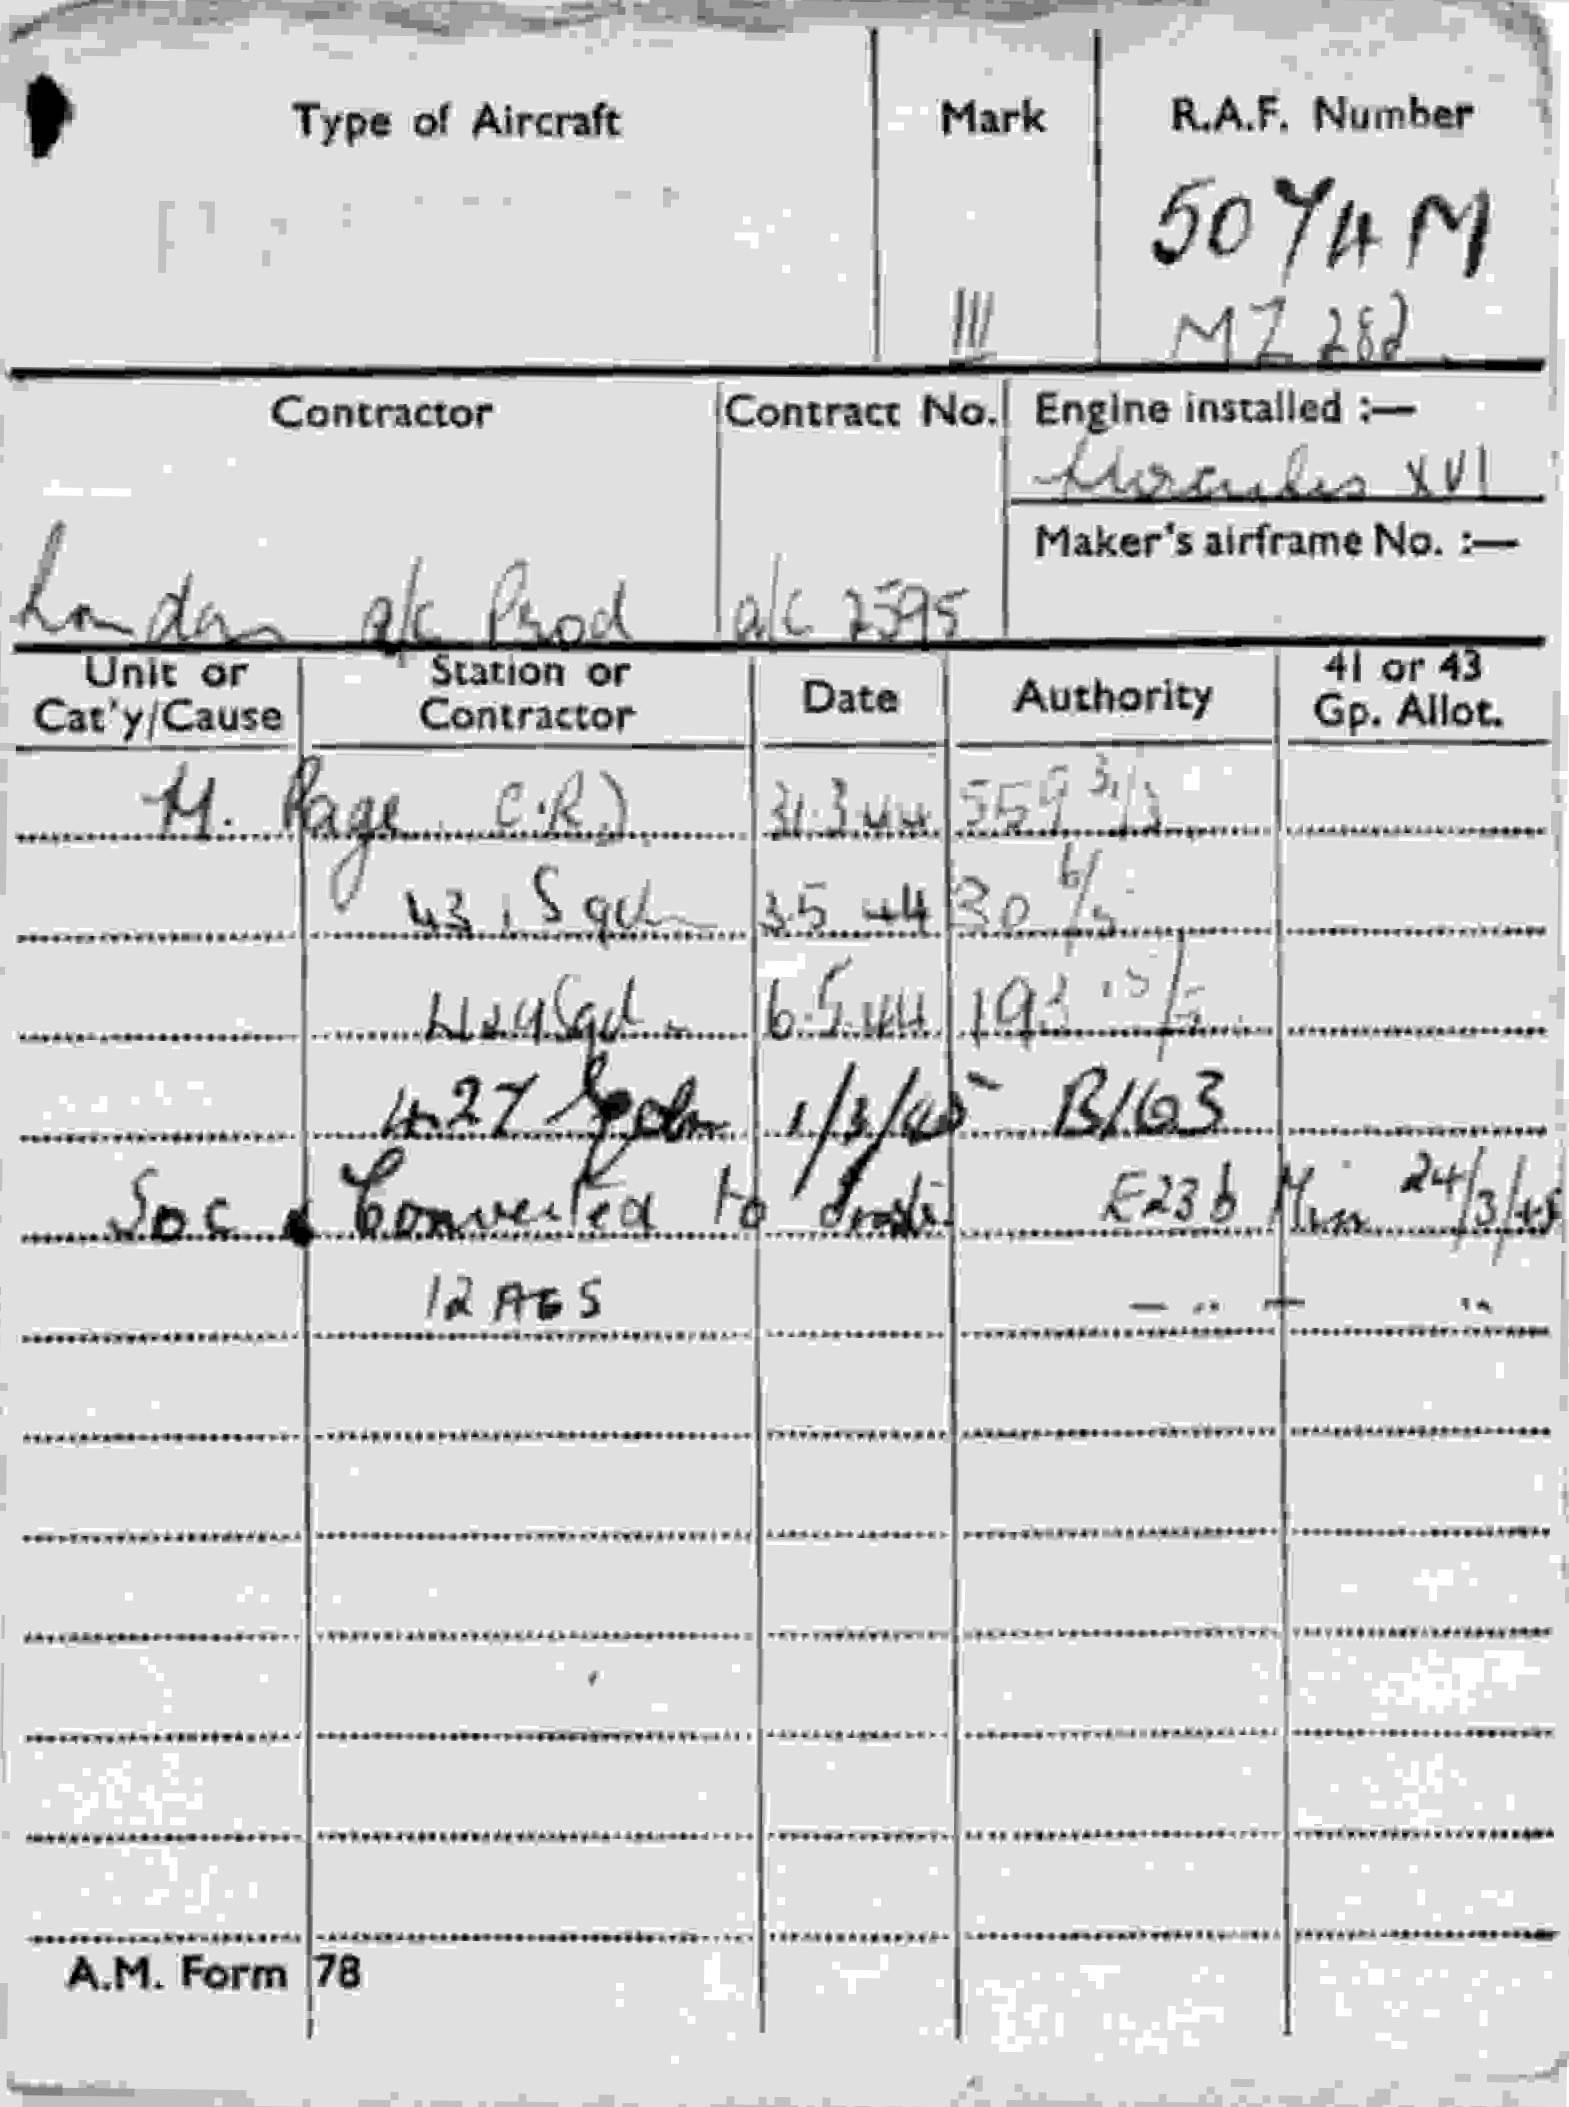 Type of Aircraft Mark R.A.F. Number
5074M
III MZ 282
Contractor Contract No. Engine installed :—
Hercules XVI
Maker's airframe No. :—
London a/c Prod a/c 2595
Unit or Cat'y/Cause Station or Contractor Date Authority 41 or 43 Gp. Allot.
H. Page. C.R.) 31.3.44 559 31/3
43 Sqdn 3.5 44 30 6/5
429 Sqd 6.5.44 193
427 Sqdn 1/3/45 B/163
Soc & Converted to Instr. E23b Min 24/3/45
12 AGS — " — "
A.M. Form 78